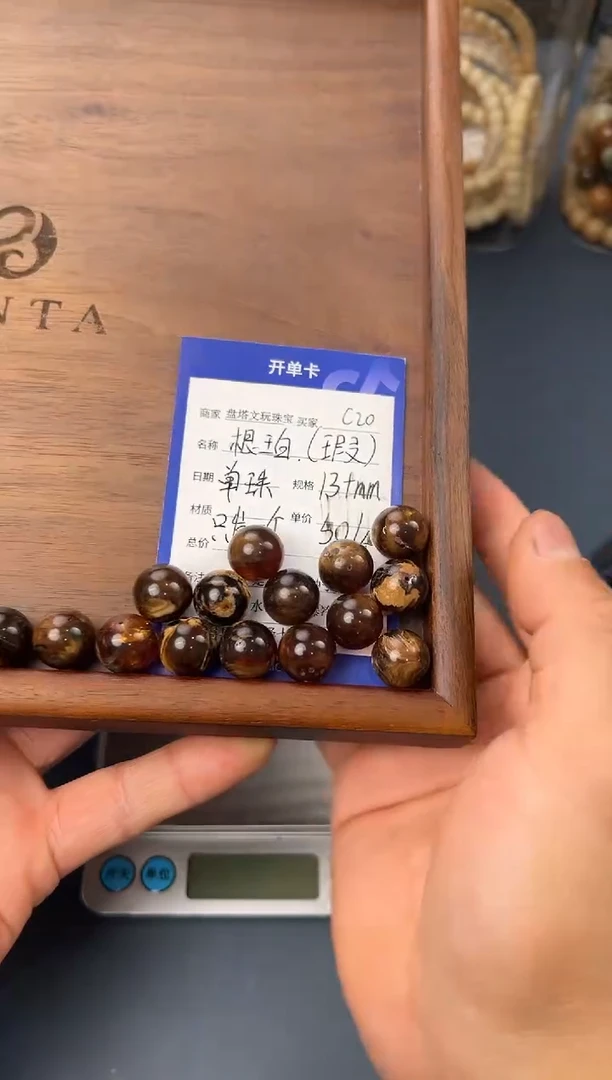 NTA
开单卡
商家 盘塔文玩珠宝 买家 C20
名称 根珀.(瑕疵)
日期 单珠 规格 13+mm
材质 只发一个 单价 50/个
总价
水
单位